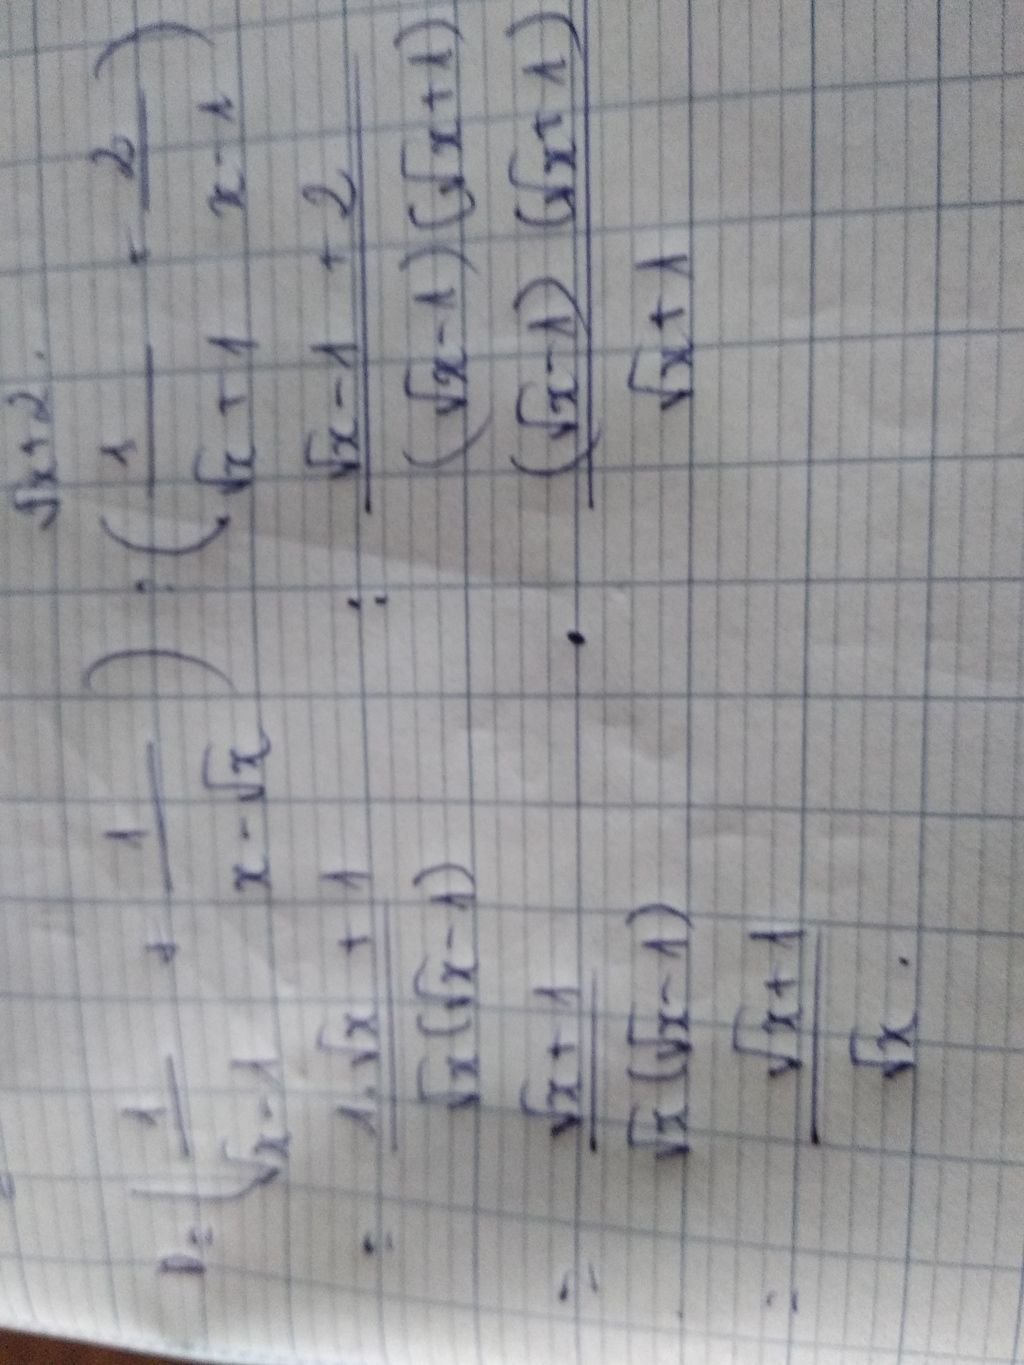 √x+2.
P = (1/(√x-1) + 1/(x-√x)) : (1/(√x+1) + 2/(x-1))
= (1.√x + 1)/(√x(√x-1)) : (√x-1 + 2)/((√x-1)(√x+1))
= (√x+1)/(√x(√x-1)) . ((√x-1)(√x+1))/(√x+1)
= (√x+1)/√x .